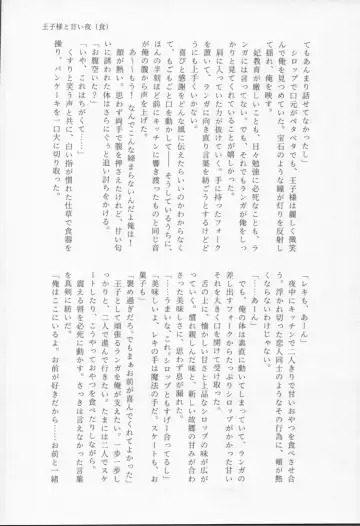 王子様と甘い夜（食）
てもあんまり話せてなかったし」
シロップで口元がベタベタでも、王子様は麗しく微笑
んで俺を見つめていた。宝石のような瞳が灯りを反射し
て揺れ、俺を映す。
妃教育が厳しいことも、日々勉強に必死なことも、ラ
ンガには言ってない。でも、それでもランガが俺をしっ
かりと見てくれていることが嬉しかった。
肩に入っていた力が抜けていく。手に持ったフォーク
をテーブルに置き、
ンガに向き直り言葉を紡ごうとするけれど
もうまくいかない。
喜びと感謝をどんな風に伝えたらいいのかわからなく
て、もごもごと口を動かして――そうしているうちに、
ほんの半刻ほど前にキッチンに響き渡ったものと同じ音
が俺の腹から声を上げた。
「あ～～もう！なんでこんな締まらないんだよ俺は！」
顔が熱い。思わず両手で腹を押さえたけれど、甘い匂
いに誘われた体はさらにぐぅと追い討ちをかける。
「お腹空いた？」
「いや、これはちがくて……」
くすくすと笑う声と共に、白い指が慣れた仕草で食器を
操り、パンケーキを一口大に切り取った。
「レキも、あーん」
「……あーん」
夜中にキッチンで二人きりで甘いおやつを食べさせ合
う。浮かれ切った恋人同士のようなその行為に、頬が熱
くならないわけじゃない。
でも、俺の体は素直に動いてしまっていて、ランガの
差し出すフォークからたっぷりシロップがかかった甘い
それを大きく口を開けて受け取った。
舌の上に、懐かしい甘さと上品なシロップの味が広が
っていく。慣れ親しんだ味と、新しい故郷の甘みが合わ
さった美味しさに、思わず息が漏れた。
「……うまいな、これ。シロップともすげー合ってるし」
「美味しいよ。レキの手は魔法の手だ。スケートも、お
菓子も」
「褒め過ぎだろ。でもまぁお前が喜んでくれてよかった」
王子として頑張るランガを俺が支えたい。一歩一歩し
っかりと、二人で進んで行きたい。たまには二人でスケ
ートしたり、こうやっておやつを食べたりしながら。
震える唇を必死に動かす。さっきは言えなかった言葉
を真剣に紡いだ。
「俺はここにいるよ。お前が好きだから……お前と一緒